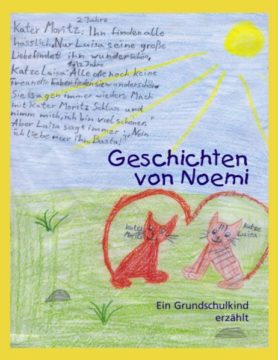 2 Jahre
Kater Moritz: Ihn finden alle
hässlich. Nur Luisa seine große
Liebe findet ihn wunderschön.
1 1/2 Jahre
Katze Luisa: Alle die noch keine
Freundin haben finden sie wunderschön
Sie sagen immer wieder: Mach
mit Kater Moritz Schluss und
nimm mich, ich bin viel schöner."
Aber Luisa sagt immer: „Nein
ich liebe nur ihn, Basta!"
Geschichten
von Noemi
Kater
Moritz
Katze
Luisa
Ein Grundschulkind
erzählt